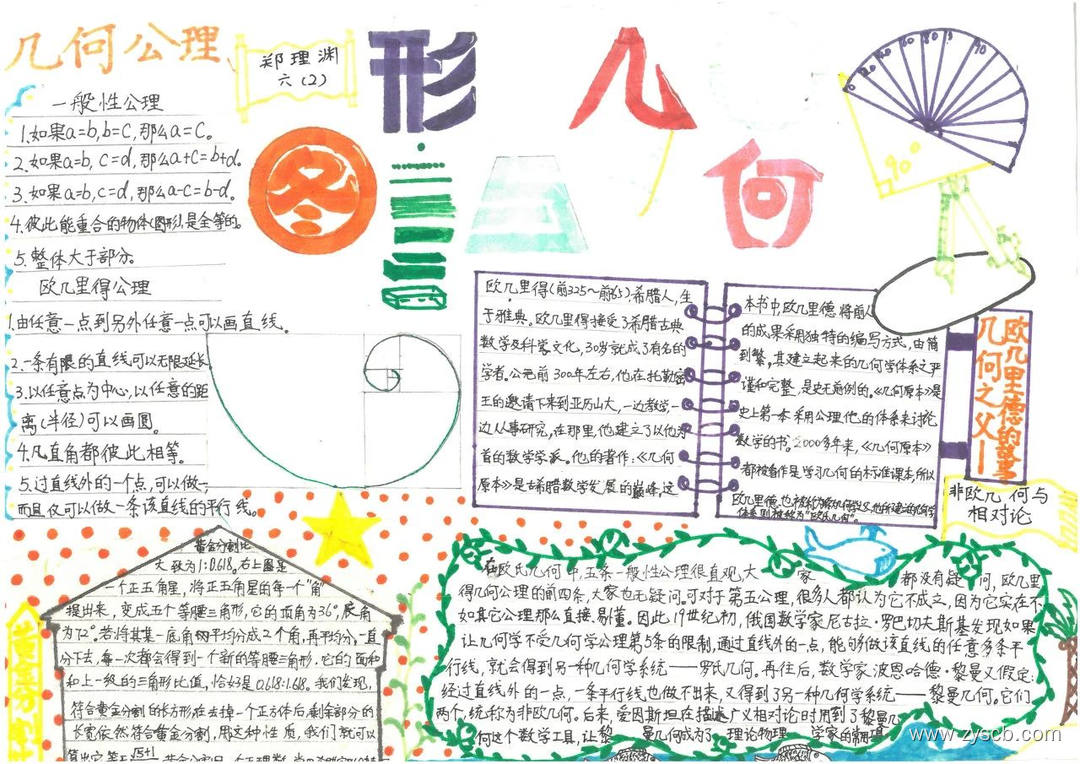 几何公理
郑理渊
六(2)
形
几
图
何
一般性公理
1.如果a=b,b=c,那么a=c。
2.如果a=b, c=d,那么a+c=b+d。
3.如果a=b,c=d,那么a-c=b-d。
4.彼此能重合的物体(图形)是全等的。
5.整体大于部分。
欧几里得公理
1.由任意一点到另外任意一点可以画直线。
2.一条有限的直线可以无限延长
3.以任意点为中心,以任意的距
离(半径)可以画圆。
4.凡直角都彼此相等。
5.过直线外的一个点,可以做一,
而且仅可以做一条该直线的平行线。
90°
欧几里得(前325~前265)希腊人,生
于雅典。欧几里得接受了希腊古典
数学及科学文化,30岁就成了有名的
学者。公元前300年左右,他在托勒密
王的邀请下来到亚历山大,一边教学,一
边从事研究,在那里,他建立了以他为
首的数学学派。他的著作:《几何
原本》是古希腊数学发展的巅峰,这
本书中,欧几里德将前人
的成果采用独特的编写方式,由简
到繁,其建立起来的几何学体系之严
谨和完整,是史无前例的。《几何原本》是
史上第一本采用公理化的体系来讨论
数学的书。2000多年来,《几何原本》
都被看作是学习几何的标准课本,所以
欧几里德,也被称为
体系则被称为“欧氏几何”。
欧几里德的故事
几何之父——
非欧几何与
相对论
黄金分割比
大致为1:0.618。右上图是
一个正五角星,将正五角星的每一个“角”
提出来,变成五个等腰三角形,它的顶角为36°,底角
为72°。若将其某一底角平均分成2个角,再平均分,一直
分下去,每一次都会得到一个新的等腰三角形.它的面积
和上一级的三角形比值,恰好是0.618:1.618。我们发现,
符合黄金分割的长方形在去掉一个正方体后,剩余部分的
长宽依然符合黄金分割,用这种性质,我们就可以
黄金分割
在欧氏几何中,五条一般性公理很直观,大家都没有疑问,欧几里
得几何公理的前四条,大家也无疑问。可对于第五公理,很多人都认为它不成立,因为它实在不
如其它公理那么直接、易懂。因此,19世纪初,俄国数学家尼古拉·罗巴切夫斯基发现如果
让几何学不受几何学公理第5条的限制,通过直线外的一点,能够做该直线的任意多条平
行线,就会得到另一种几何学系统——罗氏几何。再往后,数学家波恩哈德·黎曼又假定:
经过直线外的一点,一条平行线也做不出来,又得到了另一种几何学系统——黎曼几何。它们
两个,统称为非欧几何。后来,爱因斯坦在描述广义相对论时用到了黎曼几
何这个数学工具,让黎曼几何成为了理论物理学家的
www.zyscb.com